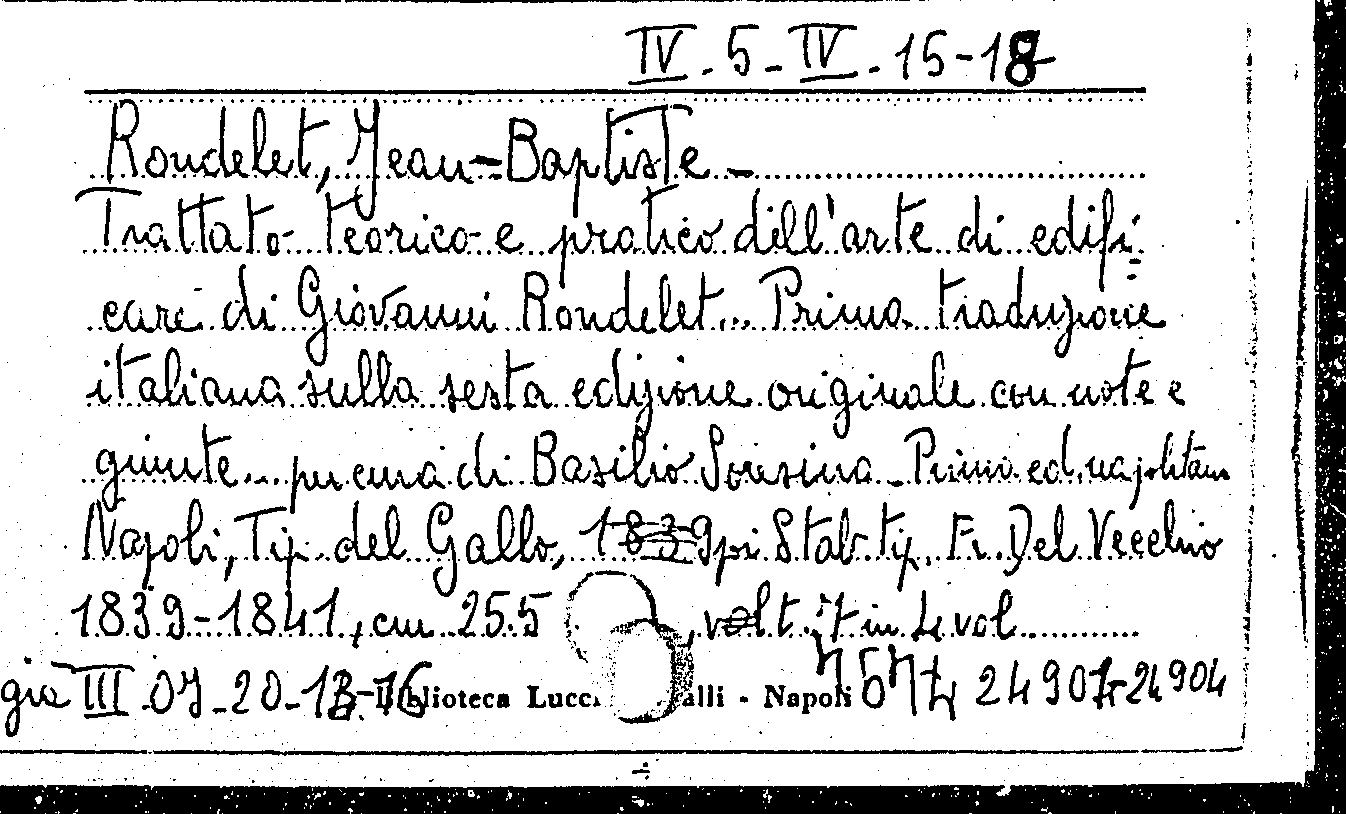 IV. 5 - IV. 15-18
Rondelet, Jean-Baptiste -
Trattato teorico e pratico dell'arte di edifi
care di Giovanni Rondelet... Prima traduzione
italiana sulla sesta edizione originale con note e
giunte... per cura di Basilio Soresina - Prima ed. napolitana
Napoli, Tip. del Gallo, 1839 poi Stab. tip. Fr. Del Vecchio
1839-1841, cm 25.5 , t. in vol.
già III 07-20-13-16 Biblioteca Lucchesi Palli - Napoli 24901-24904